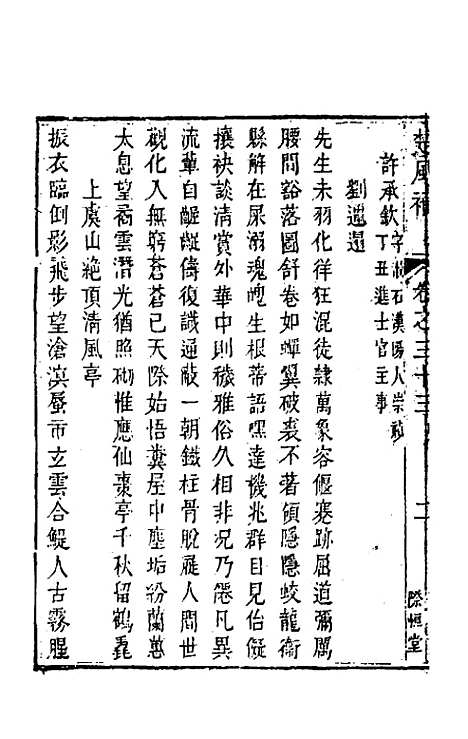 楚風補 卷之三十三 二 際恒堂
許承欽 字 石漢陽人崇禎
丁丑進士官主事
劉邋遢
先生未羽化徉狂混徒隸萬象容偃蹇跡屈道彌厲
腰間豁落圖舒卷如蟬翼破裘不著領隱隱蛟龍衞
縣解在尿溺魂魄生根蒂語嘿達機兆群目見佁儗
攘袂談清賞外華中則穢雅俗久相非况乃僊凡異
流輩自齷齪儔復識通敝一朝鐵柱骨脫屣人間世
觀化入無窮蒼蒼已天際始悟糞屋中塵垢紛蘭蕙
太息望裔雲潛光猶照 惟應仙棗亭千秋留鶴毳
上虞山絶頂清風亭
振衣臨倒影飛步望滄溟蜃市玄雲合鯷人古霧腥